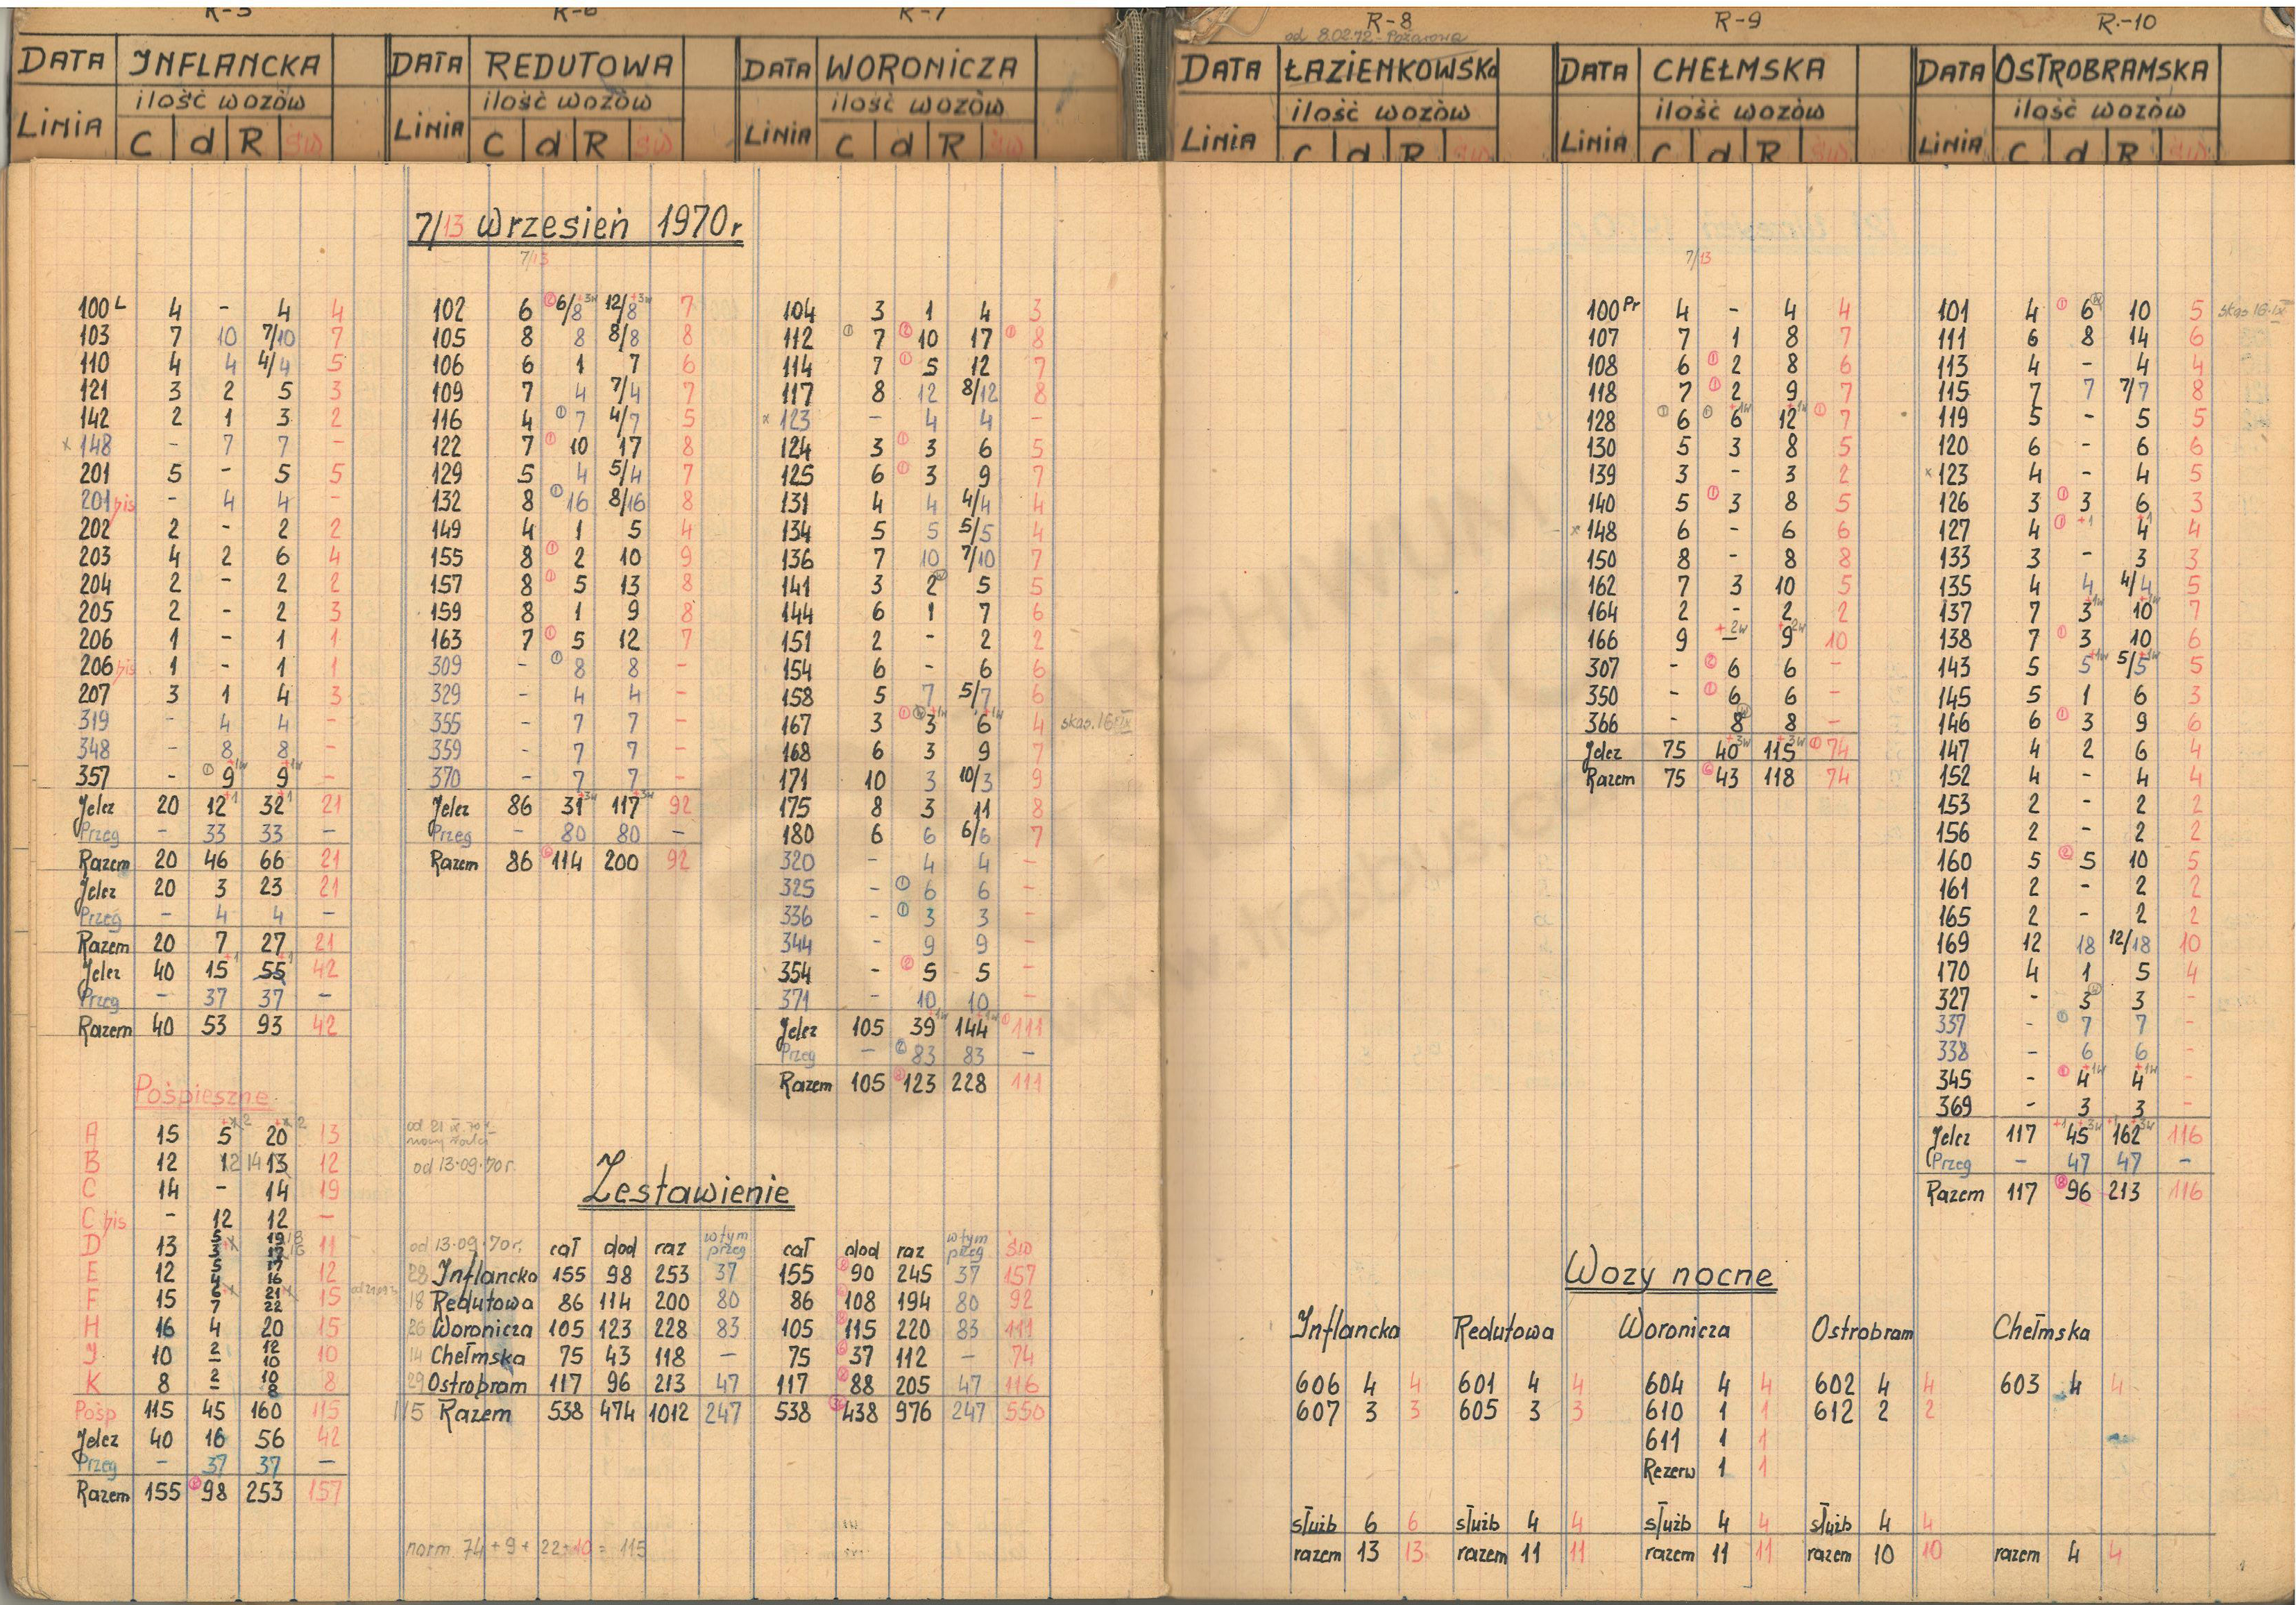 R-5
DATA INFLANCKA
ilość wozów
LiNiA C d R św
R-6
DATA REDUTOWA
ilość wozów
LiNiA C d R św
R-7
DATA WORONICZA
ilość wozów
LiNiA C d R św
R-8
od 8.02.72 - Pożarowa
DATA ŁAZIENKOWSKa
ilość wozów
LiNiA C d R św
R-9
DATA CHEŁMSKA
ilość wozów
LiNiA C d R św
R-10
DATA OSTROBRAMSKA
ilość wozów
LiNiA C d R św
7/13 Wrzesień 1970 r
100 L 4 - 4 4
103 7 10 7/10 7
110 4 4 4/4 5
121 3 2 5 3
142 2 1 3 2
x 148 - 7 7 -
201 5 - 5 5
201 bis - 4 4 -
202 2 - 2 2
203 4 2 6 4
204 2 - 2 2
205 2 - 2 3
206 1 - 1 1
206 bis 1 - 1 1
207 3 1 4 3
319 - 4 4 -
348 - 8 8 -
357 - ① 9 +1w 9 +1w -
Jelcz 20 12 +1 32 +1 21
Przeg - 33 33 -
Razem 20 46 66 21
Jelcz 20 3 23 21
Przeg - 4 4 -
Razem 20 7 27 21
Jelcz 40 15 +1 55 +1 42
Przeg - 37 37 -
Razem 40 53 93 42
Pośpieszne
A 15 5 20 13
B 12 1 2 14 13 12
C 14 - 14 19
C bis - 12 12 -
D 13 5 3 19 18 11
E 12 5 4 17 16 12
F 15 6 7 21 22 15
H 16 4 20 15
J 10 2 - 12 10 10
K 8 2 - 10 8 8
Pośp 115 45 160 115
Jelcz 40 16 56 42
Przeg - 37 37 -
Razem 155 98 253 157
7/13
102 6 ② 6/8 +3w 12/8 +3w 7
105 8 8 8/8 8
106 6 1 7 6
109 7 4 7/4 7
116 4 ① 7 4/7 5
122 7 ① 10 17 8
129 5 4 5/4 7
132 8 ① 16 8/16 8
149 4 1 5 4
155 8 ① 2 10 9
157 8 ① 5 13 8
159 8 1 9 8
163 7 ① 5 12 7
309 - ① 8 8 -
329 - 4 4 -
355 - 7 7 -
359 - 7 7 -
370 - 7 7 -
Jelcz 86 31 +3w 117 +3w 92
Przeg - 80 80 -
Razem 86 114 200 92
104 3 1 4 3
112 ① 7 10 17 ① 8
114 7 ① 5 12 7
117 8 12 8/12 8
x 123 - 4 4 -
124 3 ① 3 6 5
125 6 ① 3 9 7
131 4 4 4/4 4
134 5 5 5/5 4
136 7 10 7/10 7
141 3 2 5 5
144 6 1 7 6
151 2 - 2 2
154 6 - 6 6
158 5 7 5/7 6
167 3 ① 3 +1w 6 +1w 4 skas. 16 IX
168 6 3 9 7
171 10 3 10/3 9
175 8 3 11 8
180 6 6 6/6 7
320 - 4 4 -
325 - ① 6 6 -
336 - ① 3 3 -
344 - 9 9 -
354 - ② 5 5 -
371 - 10 10 -
Jelcz 105 39 +1w 144 +1w 111
Przeg - ② 83 83 -
Razem 105 123 228 111
od 13.09.70 r.
Zestawienie
od 13.09.70 r. cał dod raz w tym przeg cał dod raz w tym przeg św
28 Inflancka 155 98 253 37 155 90 245 37 157
18 Redutowa 86 114 200 80 86 108 194 80 92
26 Woronicza 105 123 228 83 105 115 220 83 111
14 Chełmska 75 43 118 - 75 37 112 - 74
29 Ostrobram 117 96 213 47 117 88 205 47 116
115 Razem 538 474 1012 247 538 438 976 247 550
norm 74 + 9 + 22 + 10 = 115
7/13
100 Pr 4 - 4 4
107 7 1 8 7
108 6 ① 2 8 6
118 7 ① 2 9 7
128 ① 6 ① 6 +1w 12 +1w ① 7
130 5 3 8 5
139 3 - 3 2
140 5 ① 3 8 5
x 148 6 - 6 6
150 8 - 8 8
162 7 3 10 5
164 2 - 2 2
166 9 - +2w 9 +2w 10
307 - ② 6 6 -
350 - ① 6 6 -
366 - 8 8 -
Jelcz 75 40 +3w 115 +3w ① 74
Razem 75 43 118 74
101 4 ① 6 10 5 skas 16.IX
111 6 8 14 6
113 4 - 4 4
115 7 7 7/7 8
119 5 - 5 5
120 6 - 6 6
x 123 4 - 4 5
126 3 ① 3 6 3
127 4 ① +1 4 +1 4
133 3 - 3 3
135 4 4 4/4 5
137 7 3 +1w 10 +1w 7
138 7 ① 3 10 6
143 5 5 +1w 5/5 +1w 5
145 5 1 6 3
146 6 ① 3 9 6
147 4 2 6 4
152 4 - 4 4
153 2 - 2 2
156 2 - 2 2
160 5 ② 5 10 5
161 2 - 2 2
165 2 - 2 2
169 12 18 12/18 10
170 4 1 5 4
327 - 3 3 -
337 - ① 7 7 -
338 - 6 6 -
345 - ① 4 +1w 4 +1w -
369 - 3 3 -
Jelcz 117 +1 45 +3w +1 162 +3w 116
Przeg - 47 47 -
Razem 117 ⑧ 96 213 116
Wozy nocne
Inflancka Redutowa Woronicza Ostrobram Chełmska
606 4 4 601 4 4 604 4 4 602 4 4 603 4 4
607 3 3 605 3 3 610 1 1 612 2 2
611 1 1
Rezerw 1 1
służb 6 6 służb 4 4 służb 4 4 służb 4 4
razem 13 13 razem 11 11 razem 11 11 razem 10 10 razem 4 4